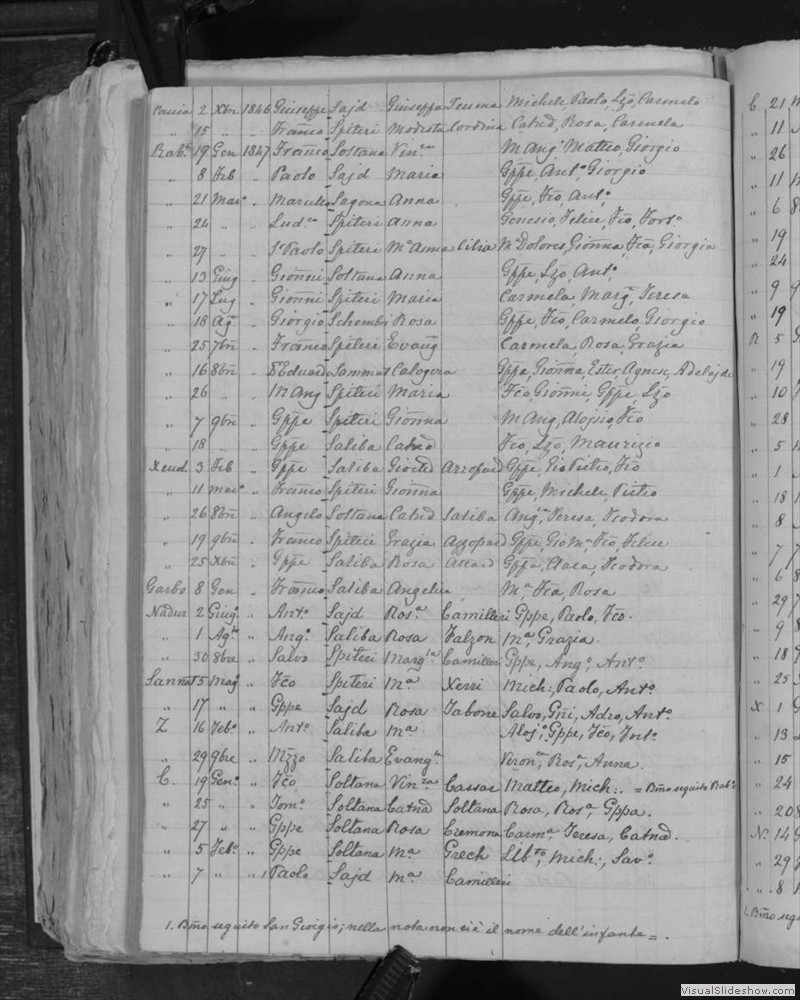 Caccia 2 Xbre 1846 Giuseppe Sajd Giuseppa Teuma Michele, Paolo, Lzo, Carmelo
" 15 " " Franco Spiteri Modesta Cordina Catnd, Rosa, Carmela
Rabto 19 Gen 1847 Franco Soltana Vinca M Ang. Matteo, Giorgio
" 8 Feb " Paolo Sajd Maria Gppe, Anto, Giorgio
" 21 Maro " Sagona Anna Gppe, Fco, Anto,
" 24 " " Ludco Spiteri Anna Genesio, Felice, Fco, Forto
" 27 " St Paolo Spiteri Ma Anna Cilia Ma Dolores, Gionna, Fca, Giorgia
" 13 Giug " Gionni Soltana Anna Gppe, Lzo, Anto,
" 17 Lug " Gionni Spiteri Maria Carmela, Marga, Teresa
" 18 Ag " Giorgio Schembri Rosa Gppe, Fco, Carmelo, Giorgio
" 25 7bre " Franco Spiteri Evang Carmela, Rosa, Grazia
" 16 8bre " Eduardo Sammut Calogera Gppa, Gionna, Ester, Agnese, Adelajde
" 26 " " M Ang Spiteri Maria Fco, Gionni, Gppe, Lzo
" 7 9bre " Gppe Spiteri Gionna M Ang, Alojsio, Fco
" 18 " " Gppe Saliba Catnd Fco, Lzo, Maurizio
Xeud 3 Feb " Gppe Saliba Azzopard Gppe, Gio Pietro, Fco
" 11 Maro " Franco Spiteri Gionna Gppe, Michele, Pietro
" 26 8bre " Angelo Soltana Catnd Saliba Anga, Teresa, Teodora
" 19 9bre " Franco Spiteri Grazia Azzopard Gppe, Gio Ma, Fco, Felice
" 25 Xbre " Gppe Saliba Rosa Attard Gppa, Clara, Teodora
Garbo 8 Gen " Franco Saliba Angelica Ma, Fca, Rosa
Nadur 2 Giugo " Anto Sajd Rosa Camilleri Gppe, Paolo, Fco.
" 1 Agto " Ango Saliba Rosa Falzon Ma, Grazia.
" 30 8bre " Salvo Spiteri Margta Camilleri Gppe, Ango, Anto.
Sannat 5 Mago " Fco Spiteri Ma Xerri Mich:, Paolo, Anto.
" 17 " " Gppe Sajd Rosa Tabone Salvo, Gni, Adeo, Anto.
Z 16 Febo " Anto Saliba Ma Aloj:, Gppe, Fco, Forto.
" 29 9bre " Mzzo Saliba Evangta Verona, Rosa, Anna.
C. 19 Geno " Fco Soltana Vinza Cassar Matteo, Mich:. = Bmo seguito Rabto
" 25 " " Tomo Soltana Catnd Soltana Rosa, Rosa, Gppa.
" 27 " " Gppe Soltana Rosa Cremona Carma, Teresa, Catnd.
" 5 Febo " Gppe Soltana Ma Grech Libto, Mich:, Savo.
" 7 " " 1 Paolo Sajd Ma Camilleri
1. Bmo seguito San Giorgio; nella nota non ci è il nome dell'infante = .
C 21
" 11
" 26
" 11
" 6
" 19
" 24
" 9
" 19
R 5
" 19
" 10
" 28
" 5
" 1
" 18
" 8
" 7
" 6
" 29
" 9
" 18
" 25
X 1
" 13
" 15
" 24
" 20
N. 14
" 29
" 8
VisualSlideshow.com